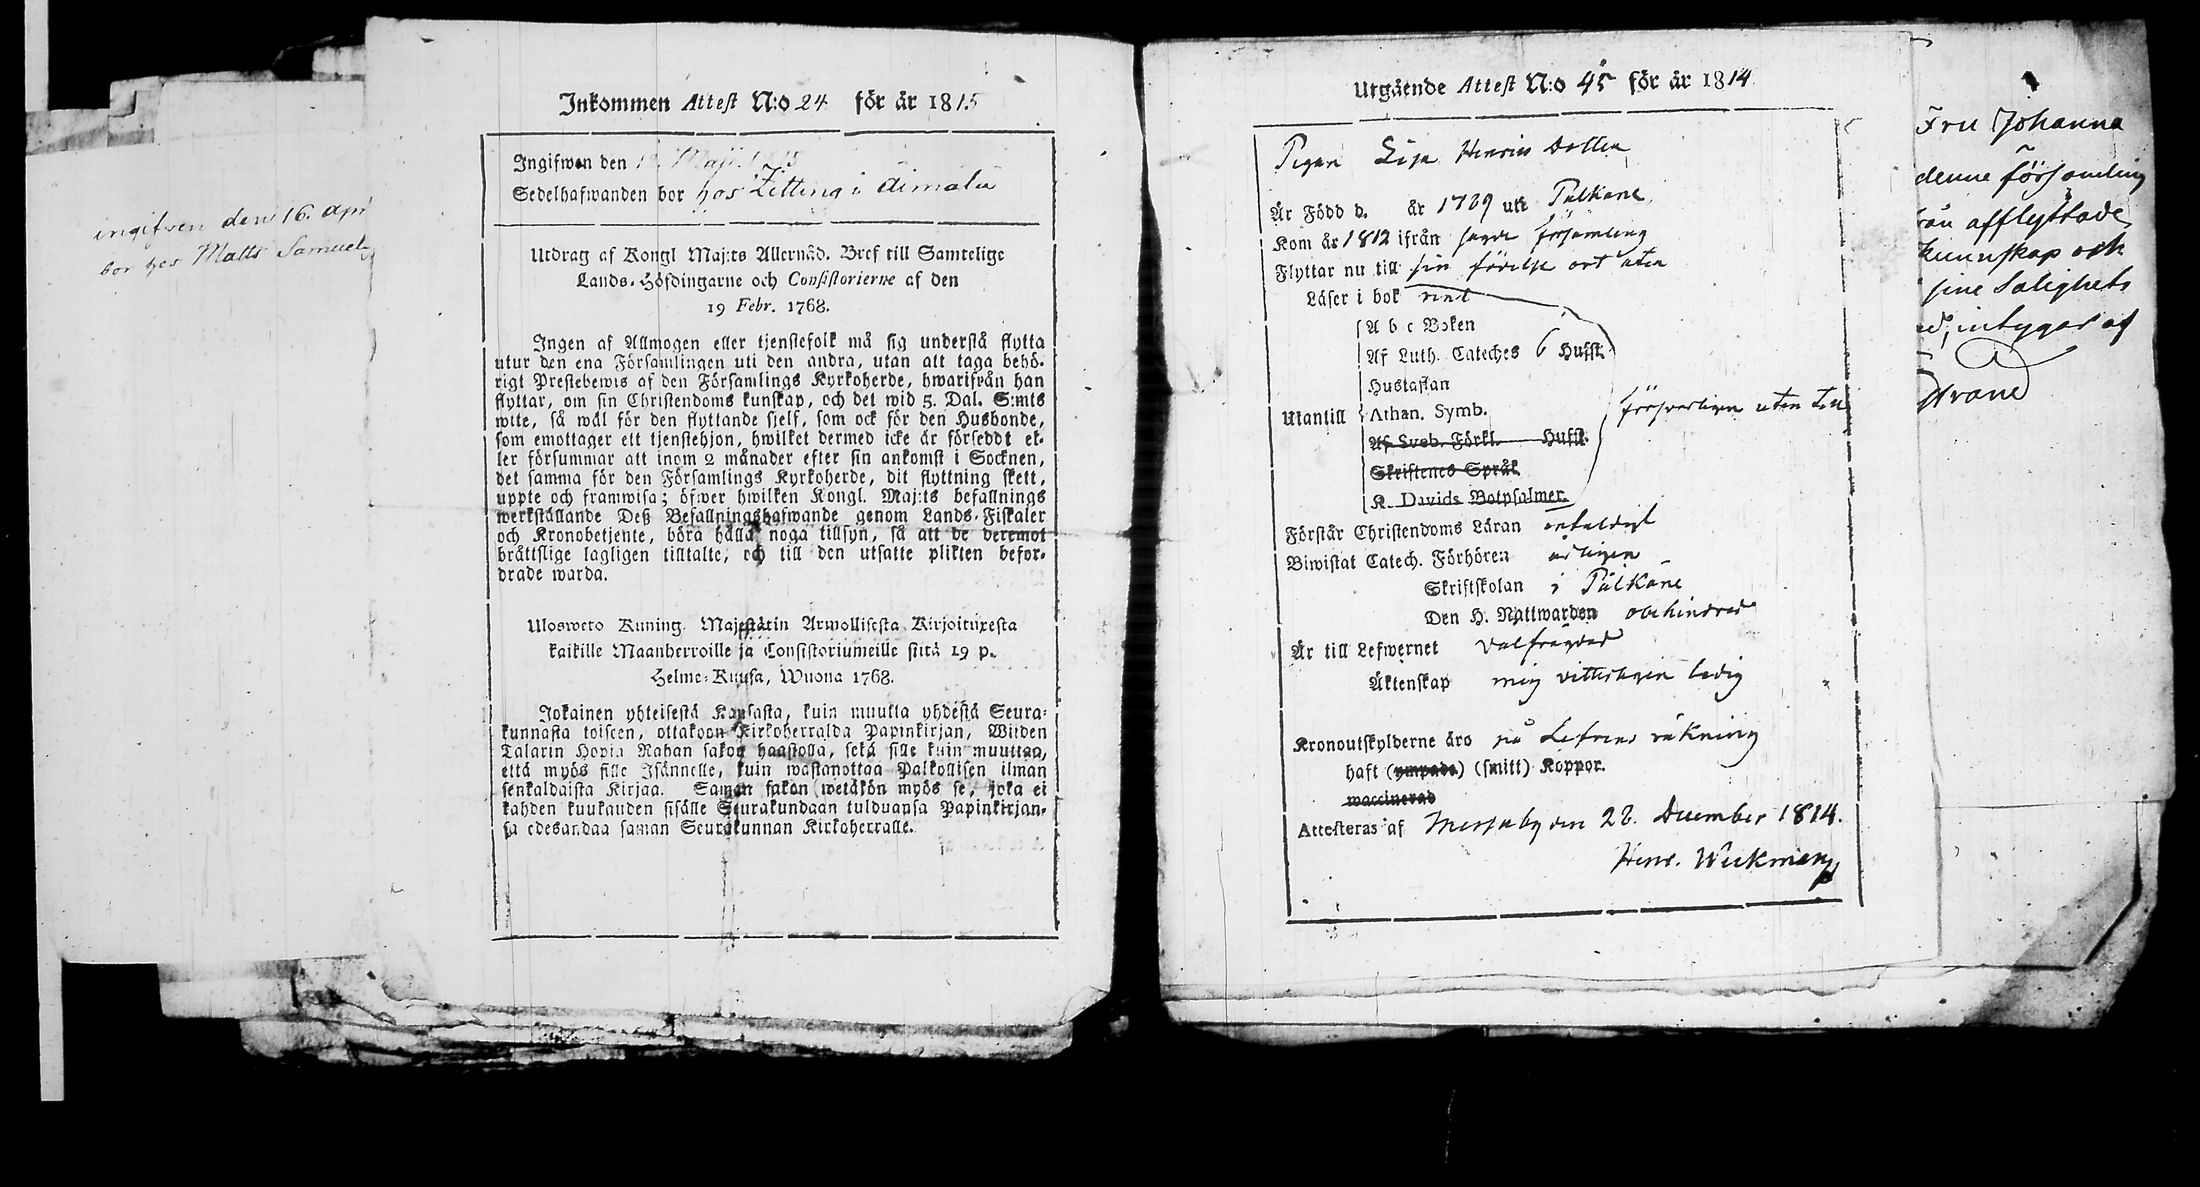 ingifven den 16. Apri
bor hos Matts Samuels
Inkommen Attest N:o 24 för år 1815
Ingifwen den Maji 1815
Sedelhafwanden bor hos Zitting i Aimala
Utdrag af Kongl Maj:ts Allernåd. Bref till Samtelige
Lands-Höfdingarne och Consistorierne af den
19 Febr. 1768.
Ingen af Allmogen eller tjenstefolk må sig understå flytta
utur den ena Församlingen uti den andra, utan att taga behö-
rigt Prestebewis af den Församlings Kyrkoherde, hwarifrån han
flyttar, om sin Christendoms kunskap, och det wid 5. Dal. S:mts
wite, så wäl för den flyttande sjelf, som ock för den Husbonde,
som emottager ett tjenstehjon, hwilket dermed icke är försedt el-
ler försummar att inom 2 månader efter sin ankomst i Socknen,
det samma för den Församlings Kyrkoherde, dit flyttning skett,
uppte och framwisa; öfwer hwilken Kongl. Maj:ts befallnings
werkställande Deß Befallningshafwande genom Lands-Fiskaler
och Kronobetjente, böra hålla noga tillsyn, så att de deremot
bråttslige lagligen tilltalte, och till den utsatte plikten befor-
drade warda.
Ulosweto Kuning. Majestätin Armollisesta Kirjoituxesta
kaikille Maanherroille ja Consistoriumeille siitä 19 p.
Helme-Kuusa, Wuona 1768.
Jokainen yhteisestä Kansasta, kuin muutta yhdestä Seura-
kunnasta toiseen, ottakoon Kirkoherralda Papinkirjan, Wiiden
Talarin Hopia Rahan sakon haastolla, sekä sille kuin muuttaa,
että myös sille Isännelle, kuin wastanottaa Palkollisen ilman
senkaldaista Kirjaa. Saman sakon wetäkön myös se, joka ei
kahden kuukauden sisälle Seurakundaan tulduansa Papinkirjan-
sa edesandaa saman Seurakunnan Kirkoherralle.
Utgående Attest N:o 45 för år 1814
Pigan Lisa Henrics Dotter
Är Född d. år 1789 uti Pälkäne
Kom år 1812 ifrån samma församling
Flyttar nu till sin födelse ort åter
Läser i bok rent
A b c Boken
Af Luth. Cateches 6 Hufst.
Hustaflan
Utantill Athan. Symb. försvarligen utan till
Af Sveb. Förkl. Hufst.
Skriftenes Språk
K. Davids Botpsalmer.
Förstår Christendoms Läran enfaldigt
Biwistat Catech. Förhören årligen
Skriftskolan i Pälkäne
Den H. Nattwarden obehindrad
Är till Lefwernet välfrägdad
Äktenskap mig vitterligen ledig
Kronoutskylderne äro på Lefrens räkning
haft (ympade) (smitt) Koppor.
waccinerad
Attesteras af Messuby den 28. December 1814.
Henr. Wickman
Fru Johanna
denne församling
rån afflyttade
kunnskap och
sine Salighets
ed, intygas af